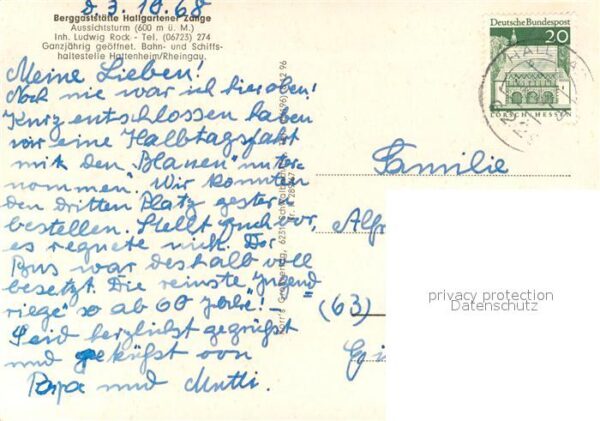 d. 3.10.68
Berggaststätte Hallgartener Zange
Aussichtsturm (600 m ü. M.)
Inh. Ludwig Rock - Tel. (06723) 274
Ganzjährig geöffnet. Bahn- und Schiffs-
haltestelle Hattenheim/Rheingau.
Meine Lieben!
Noch nie war ich hier oben!
Kurz entschlossen haben
wir eine Halbtagsfahrt
mit den „Blauen" unter-
nommen". Wir konnten
den dritten Platz gestern
bestellen. Stellt Euch vor,
es regnete nicht. Der
Bus war deshalb voll
besetzt. Die reinste „Jugend
riege" so ab 60 Jahre! -
Seid herzlichst gegrüßt
und geküßt von
Papa und Mutti.
Deutsche Bundespost
20
LORSCH-HESSEN
Familie
Alfr
(63)
Gi
privacy protection
Datenschutz